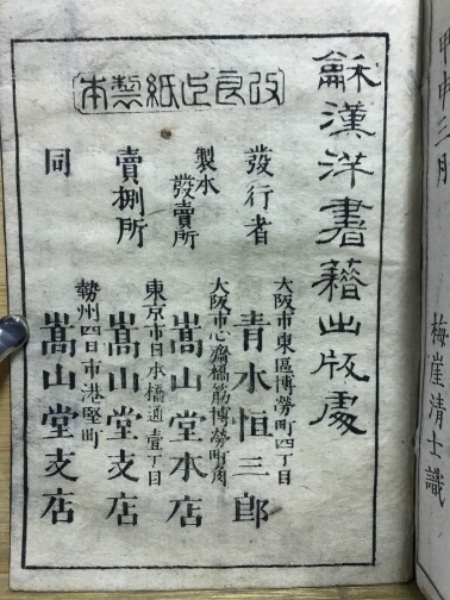 甲申三月
梅崖清士識
龢漢洋書籍出版處
改良巴紙製本
發行者
大阪市東區博勞町四丁目
青木恒三郎
製本
發賣所
大阪市心齋橋筋博勞町角
嵩山堂本店
賣捌所
東京市日本橋通壹丁目
嵩山堂支店
同
勢州四日市港竪町
嵩山堂支店